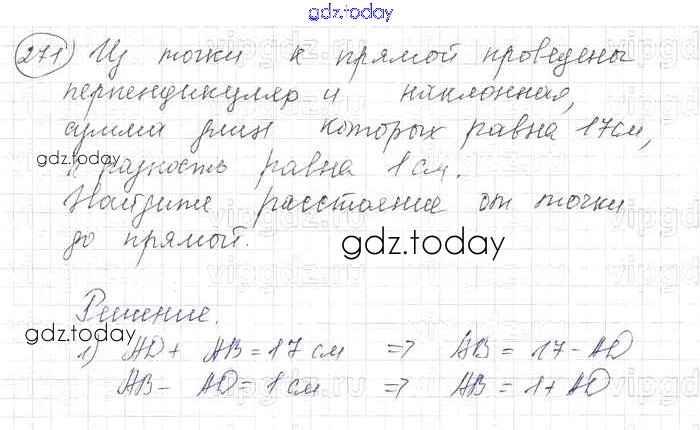 gdz.today
271) Из точки к прямой проведены
перпендикуляр и наклонная,
сумма длин которых равна 17см,
gdz.today
а разность равна 1 см.
Найдите расстояние от точки
до прямой.
gdz.today
Решение.
gdz.today
1) AD + AB = 17 см => AB = 17 - AD
AB - AD = 1 см => AB = 1 + AD